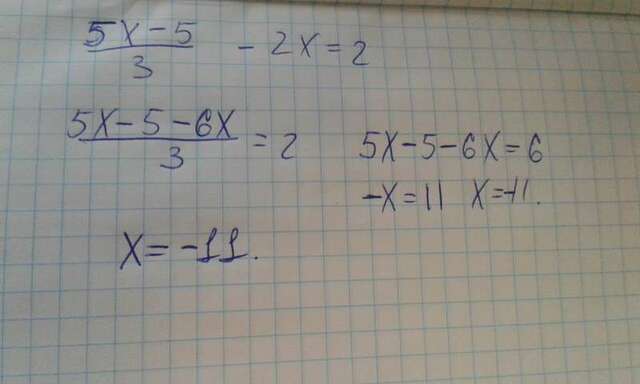 (5x-5)/3 - 2x=2
(5x-5-6x)/3 = 2   5x-5-6x=6
-x=11   x=-11.
x=-11.